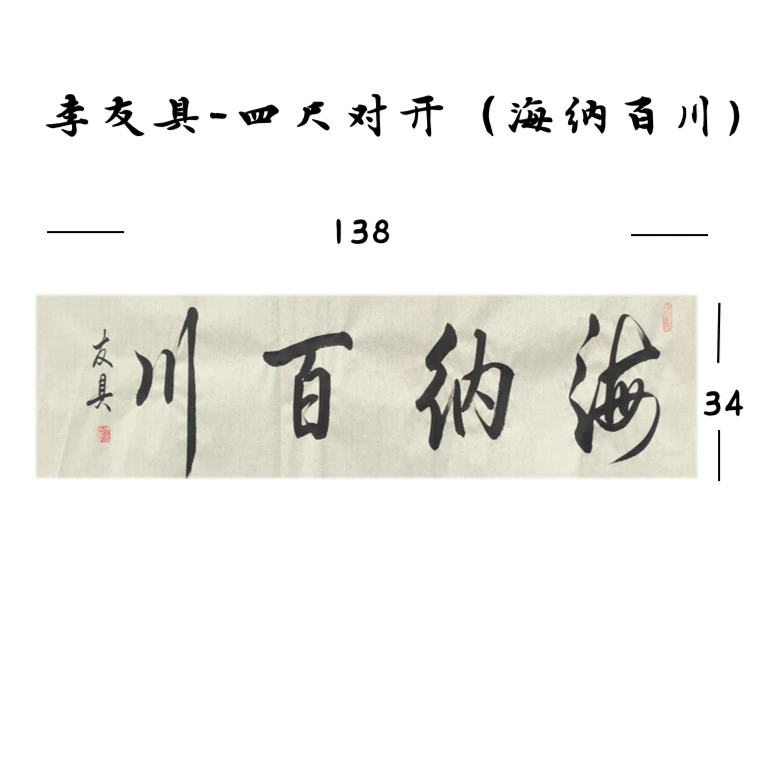 李友具-四尺对开（海纳百川）
138
海纳百川
友具
34